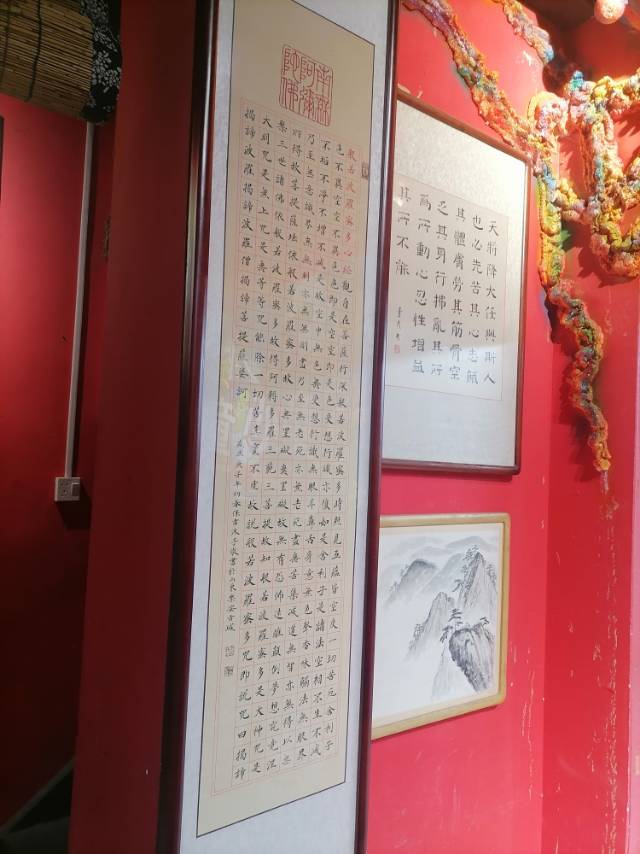 南無阿彌陀佛
般若波羅蜜多心經觀自在菩薩行深般若波羅蜜多時照見五蘊皆空度一切苦厄舍利子
色不異空空不異色色即是空空即是色受想行識亦復如是舍利子是諸法空相不生不滅
不垢不淨不增不減是故空中無色無受想行識無眼耳鼻舌身意無色聲香味觸法無眼界
乃至無意識界無無明亦無無明盡乃至無老死亦無老死盡無苦集滅道無智亦無得以無
所得故菩提薩埵依般若波羅蜜多故心無罣礙無罣礙故無有恐怖遠離顛倒夢想究竟涅
槃三世諸佛依般若波羅蜜多故得阿耨多羅三藐三菩提故知般若波羅蜜多是大神咒是
大明咒是無上咒是無等等咒能除一切苦真實不虛故說般若波羅蜜多咒即說咒曰揭諦
揭諦波羅揭諦波羅僧揭諦菩提薩婆訶
庚子年初春
書於山東樂安古城
天將降大任與斯人
也必先苦其心志餓
其體膚勞其筋骨空
乏其身行拂亂其所
為所動心忍性增益
其所不能